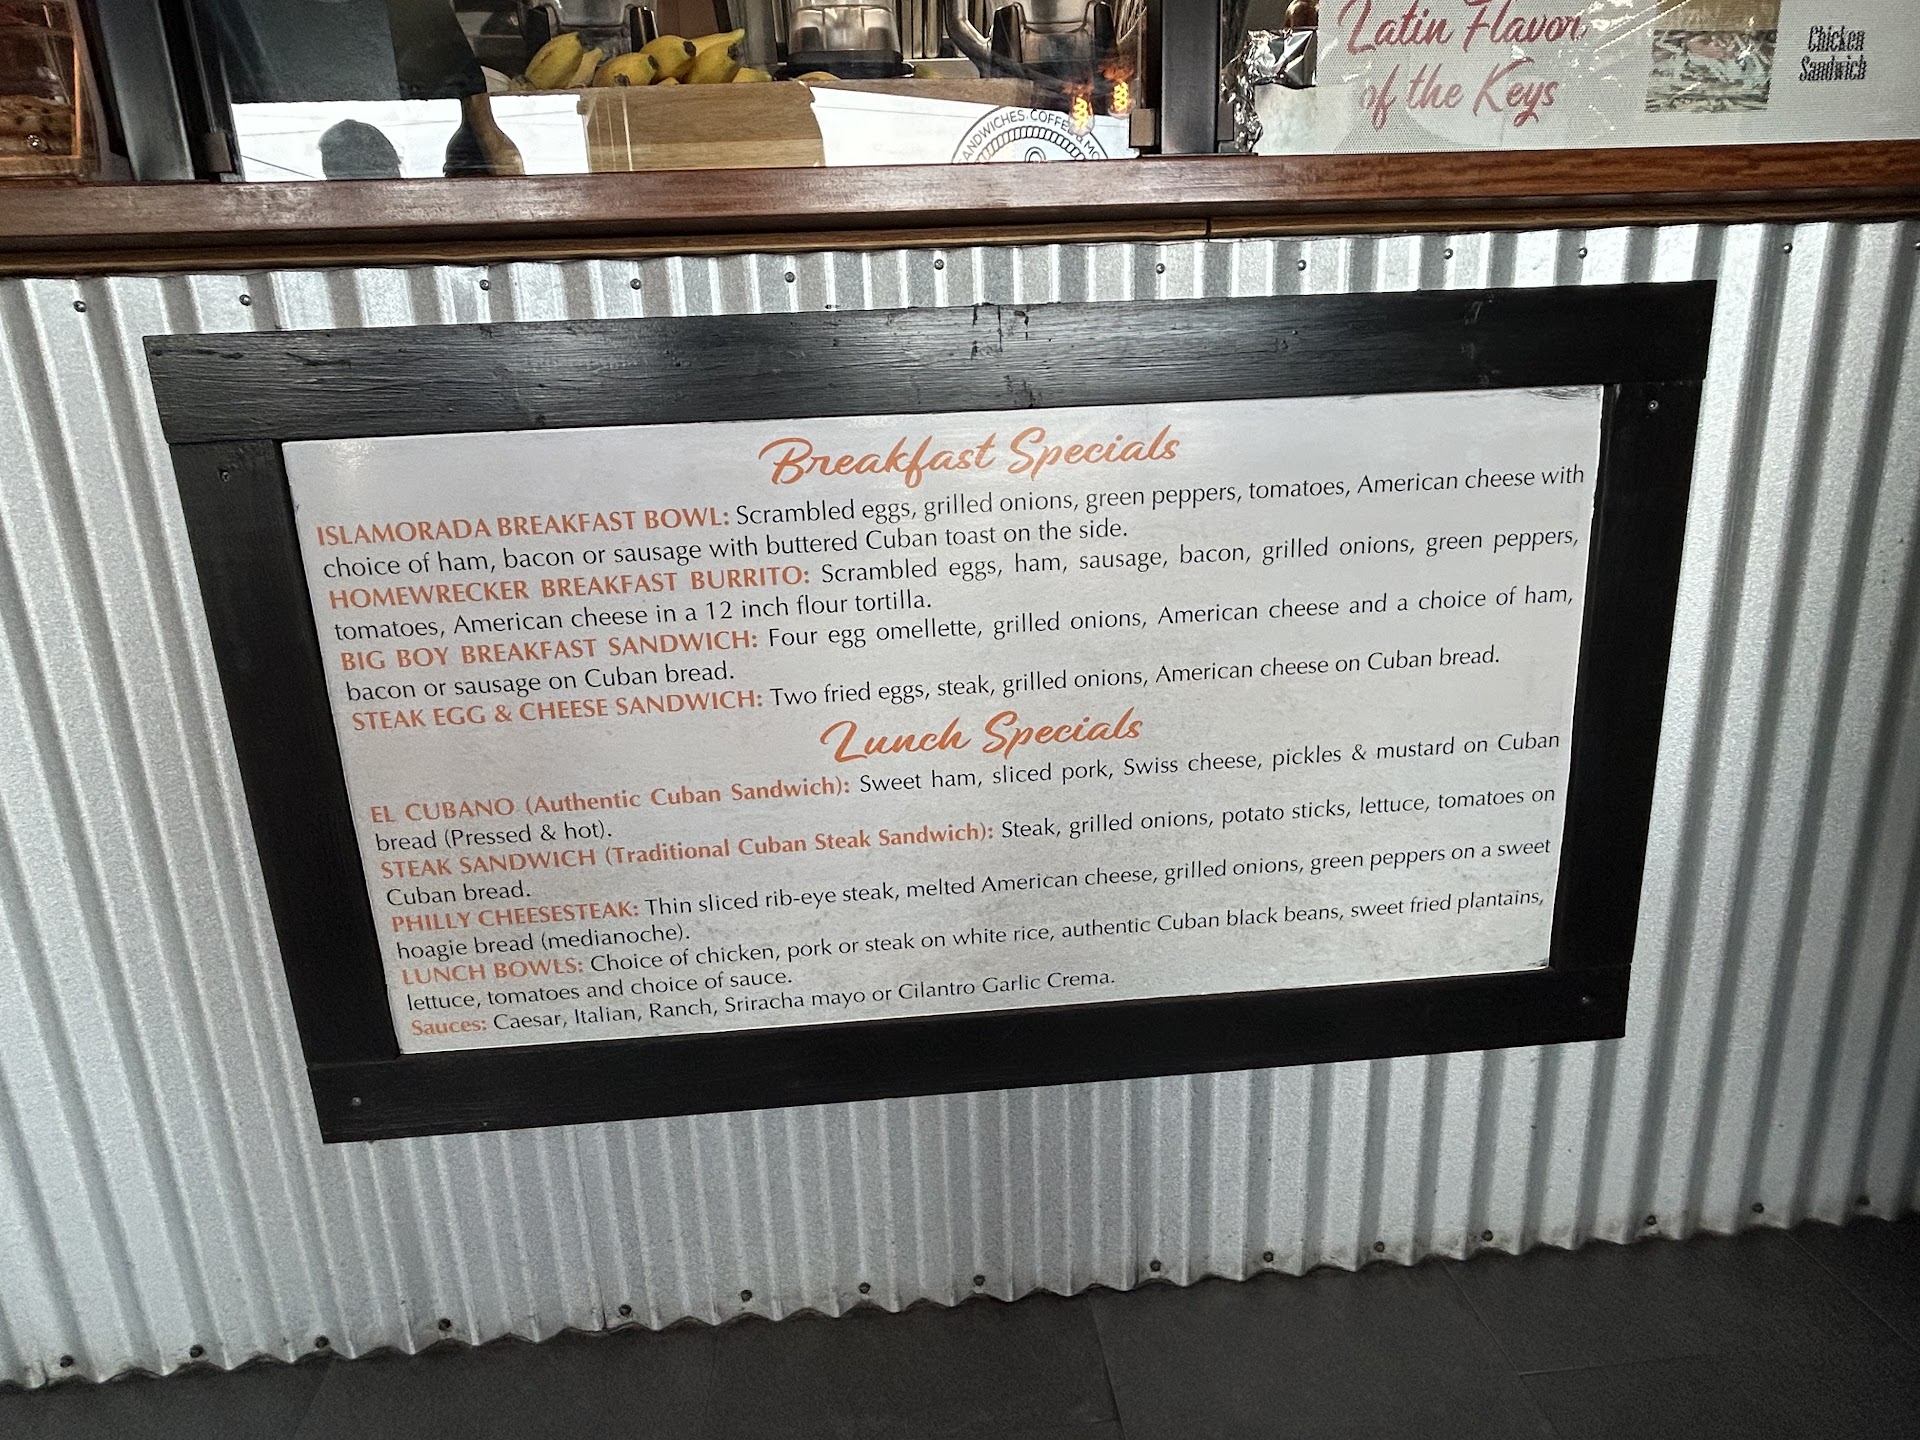 Latin Flavor
of the Keys
Chicken
Sandwich
SANDWICHES COFFEE & MO
Breakfast Specials
ISLAMORADA BREAKFAST BOWL: Scrambled eggs, grilled onions, green peppers, tomatoes, American cheese with
choice of ham, bacon or sausage with buttered Cuban toast on the side.
HOMEWRECKER BREAKFAST BURRITO: Scrambled eggs, ham, sausage, bacon, grilled onions, green peppers,
tomatoes, American cheese in a 12 inch flour tortilla.
BIG BOY BREAKFAST SANDWICH: Four egg omellette, grilled onions, American cheese and a choice of ham,
bacon or sausage on Cuban bread.
STEAK EGG & CHEESE SANDWICH: Two fried eggs, steak, grilled onions, American cheese on Cuban bread.
Lunch Specials
EL CUBANO (Authentic Cuban Sandwich): Sweet ham, sliced pork, Swiss cheese, pickles & mustard on Cuban
bread (Pressed & hot).
STEAK SANDWICH (Traditional Cuban Steak Sandwich): Steak, grilled onions, potato sticks, lettuce, tomatoes on
Cuban bread.
PHILLY CHEESESTEAK: Thin sliced rib-eye steak, melted American cheese, grilled onions, green peppers on a sweet
hoagie bread (medianoche).
LUNCH BOWLS: Choice of chicken, pork or steak on white rice, authentic Cuban black beans, sweet fried plantains,
lettuce, tomatoes and choice of sauce.
Sauces: Caesar, Italian, Ranch, Sriracha mayo or Cilantro Garlic Crema.